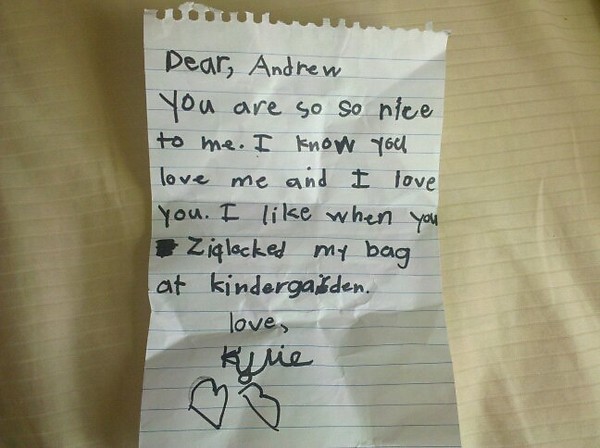 Dear, Andrew
You are so so nice
to me. I know you
love me and I love
you. I like when you
Ziqlocked my bag
at kindergarden.
love,
Kylie